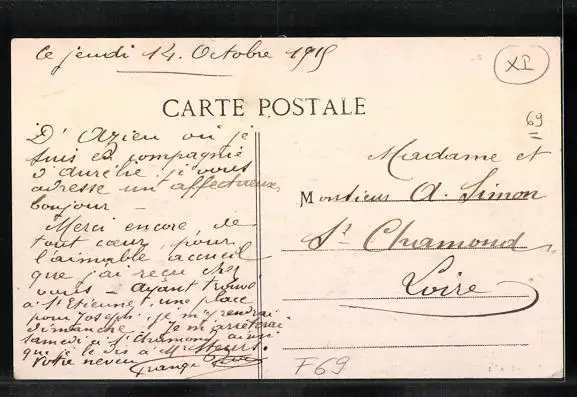 Ce jeudi 14. Octobre 1915
XI
CARTE POSTALE
69
D'Azieu où je
suis en compagnie
d'aurélie. je vous
adresse un affectueux
bonjour —
Merci encore, de
tout cœur, pour
l'aimable accueil
que j'ai reçu chez
vous — ayant trouvé
à St Etienne, une place
pour Joseph, je m'y rendrai
dimanche. Je m'arrêterai
samedi à St Chamond ainsi
que je le dis à
Votre neveu
Madame et
Monsieur A. Simon
St Chamond
Loire
F69